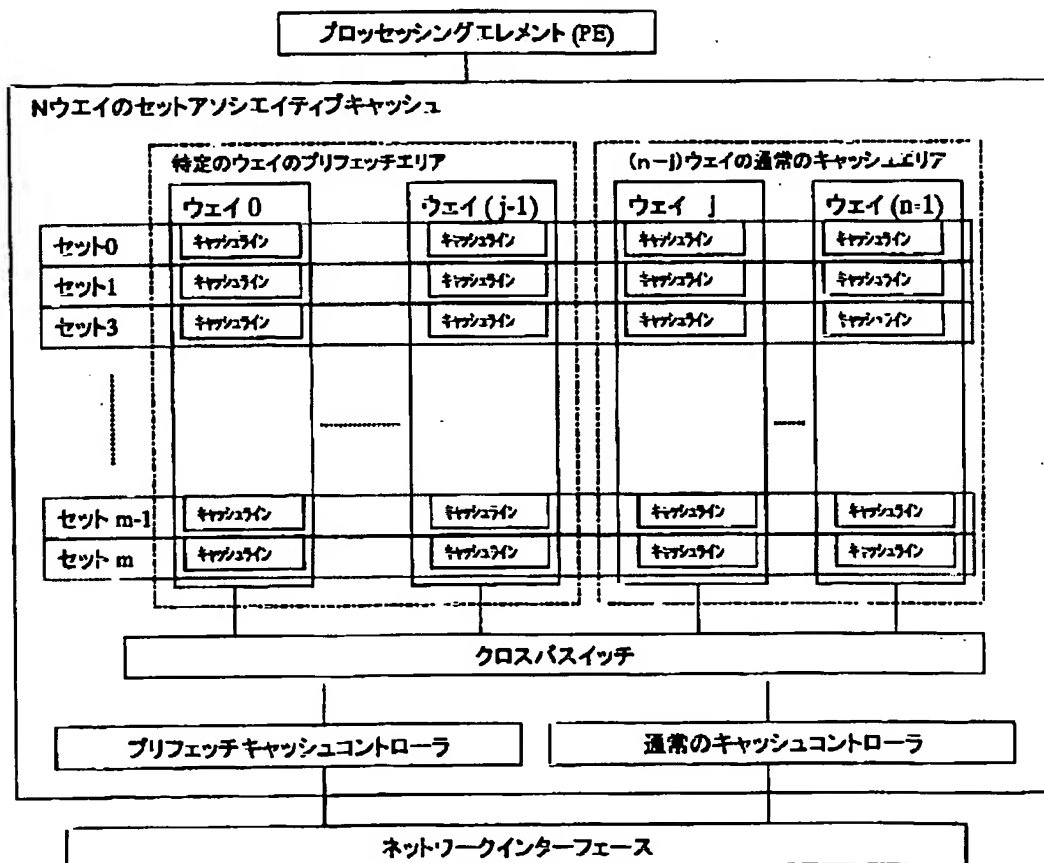 プロッセッシングエレメント (PE)
Nウエイのセットアソシエイティブキャッシュ
特定のウェイのプリフェッチエリア
(n-j)ウェイの通常のキャッシュエリア
ウェイ 0
ウェイ (j-1)
ウェイ j
ウェイ (n-1)
セット0
キャッシュライン
キャッシュライン
キャッシュライン
キャッシュライン
セット1
キャッシュライン
キャッシュライン
キャッシュライン
キャッシュライン
セット3
キャッシュライン
キャッシュライン
キャッシュライン
キャッシュライン
セット m-1
キャッシュライン
キャッシュライン
キャッシュライン
キャッシュライン
セット m
キャッシュライン
キャッシュライン
キャッシュライン
キャッシュライン
クロスバスイッチ
プリフェッチキャッシュコントローラ
通常のキャッシュコントローラ
ネットワークインターフェース